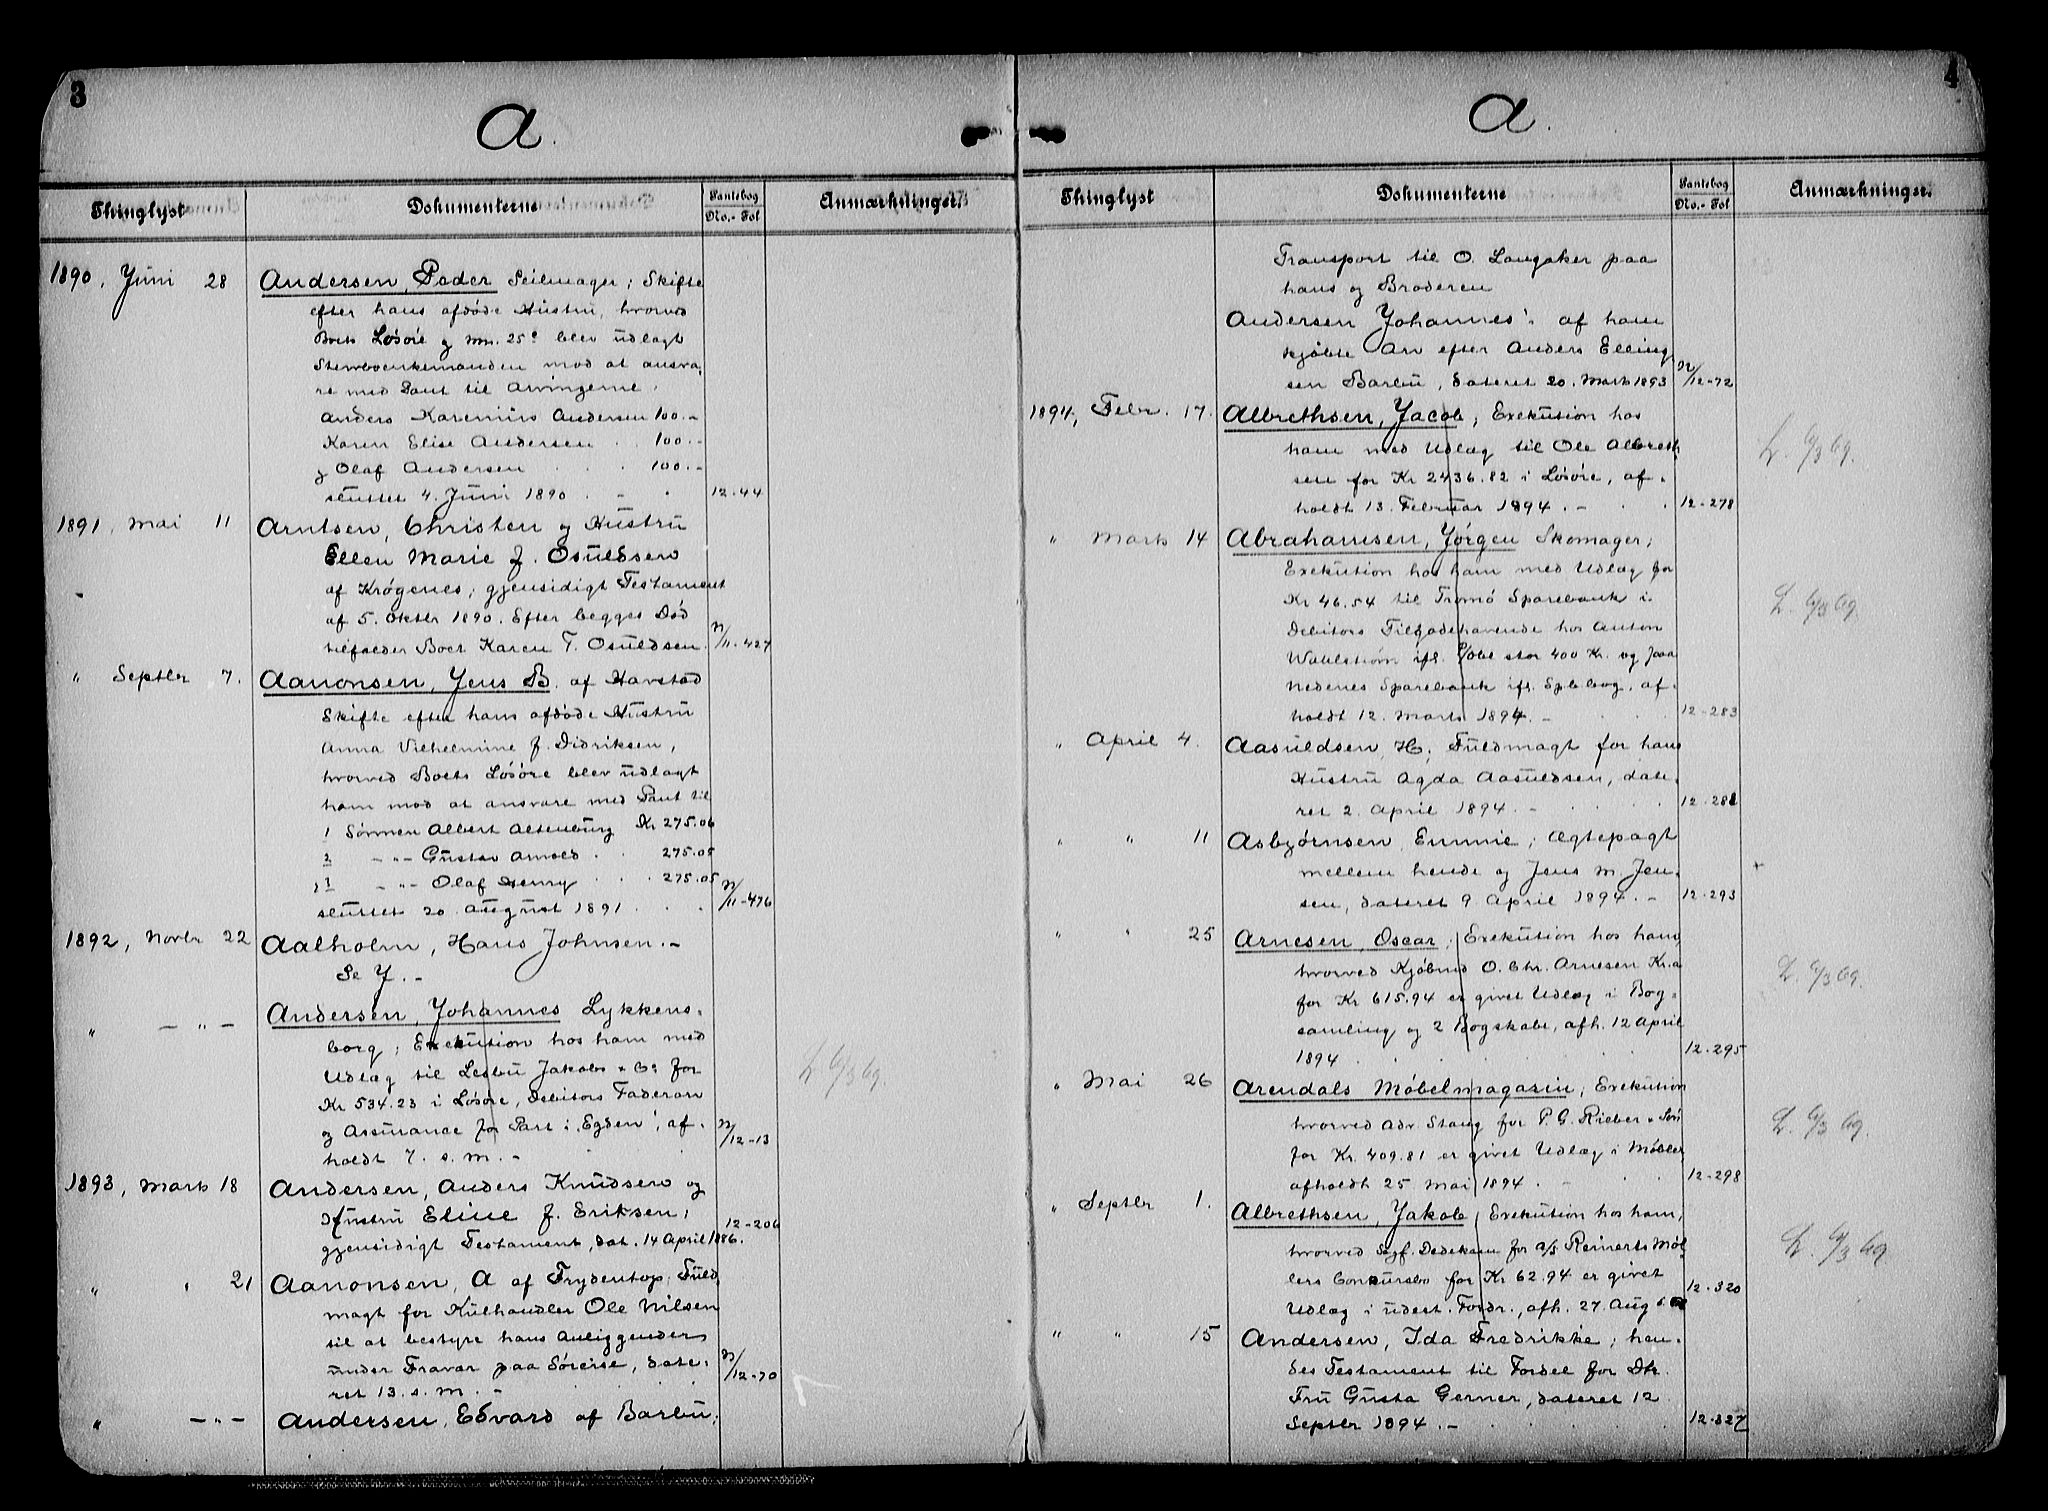 3
A.
Thinglyst
Dokumenterne
Pantebog
No. - Fol
Anmærkninger.
1890, Juni 28 Andersen, Peder Seilmager; Skifte
efter hans afdøde Hustru, hvorved
Boets Løsøre og 25 blev udlagt
Sterboenkemanden mod at ansva-
re med Pant til Arvingerne.
Anders Karenius Andersen 100.-
Karen Elise Andersen . . 100.-
og Olaf Andersen . . . 100.-
sluttet 4. Juni 1890 . - . 12-44
1891, Mai 11 Arntsen, Christen og Hustru
Ellen Marie f. Osuldsen
af Krøgenes; gjensidigt Testament
af 5. Oktbr 1890. Efter begges Død
tilfalder Boet Karen T. Osuldsen. N/11-427
" Septbr 7. Aanonsen, Jens B. af Havstad
Skifte efter hans afdøde Hustru
Anna Vilhelmine f. Didriksen,
hvorved Boets Løsøre blev udlagt
ham mod at ansvare med Pant til
1 Sønnen Albert Altenburg Kr 275.06
2 - " - Gustav Arnold . . 275.05
3 - " - Olaf Henry . . . 275.05
sluttet 20. August 1891 . . . N/11-476
1892, Novbr 22 Aalholm, Hans Johnsen.-
Se J. -
" - " - Andersen, Johannes Lykkens-
borg; Exekution hos ham med
Udlæg til Jakobs & Co for
Kr 534.23 i Løsøre, Debitors Faderarv
og Assurance for Part i "Egden", af-
holdt 7. s. m. - N/12-13
L. 6/3 69
1893, Marts 18 Andersen, Anders Knudsen og
Hustru Eline f. Eriksen,
gjensidigt Testament, dat. 14 April 1886. 12-206
" " 21 Aanonsen, A af Frydentop; Fuld-
magt for Kulhandler Ole Nilsen
til at bestyre hans Anliggender
under Fravær paa Søreise, date-
ret 13. s. m. - N/12-70
" - " - Andersen, Edvard af Barbu;
4
A.
Thinglyst
Dokumenterne
Pantebog
No. - Fol
Anmærkninger.
Transport til O. Langaker paa
hans og Broderen
Andersen Johannes's af ham
kjøbte Arv efter Anders Elling-
sen Barbu, dateret 20. Marts 1893 N/12-72
1894, Febr. 17. Albrethsen, Jacob; Exekution hos
ham med Udlæg til Ole Albreth-
sen for Kr 2436.82 i Løsøre, af-
holdt 13. Februar 1894. - . . 12-278
L. 6/3 69.
" Marts 14 Abrahamsen, Jørgen Skomager;
Exekution hos ham med Udlæg for
Kr 46.54 til Tromø Sparebank i
Debitors Tilgodehavende hos Anton
Wahlstrøm ifl. Obl stor 400 Kr. og paa
Nedenes Sparebank ifl. Spbbog, af-
holdt 12. Marts 1894. - 12-283
L. 6/3 69.
" April 4. Aasuldsen, H; Fuldmagt for hans
Hustru Agda Aasuldsen, date-
ret 2. April 1894. - . . . 12-288
" " 11 Asbjørnsen, Emmie; Ægtepagt
mellem hende og Jens M. Jen-
sen, dateret 9 April 1894. - 12-293
" " 25 Arnesen, Oscar; Exekution hos ham,
hvorved Kjøbmd O. Chr. Arnesen Kr.a
for Kr 615.94 er givet Udlæg i Bog-
samling og 2 Bogskabe, afh. 12 April
1894 . . . . . . 12-295
L. 6/3 69.
" Mai 26 Arendals Møbelmagasin; Exekution
hvorved Adv. Stang for P. G. Rieber & Søn
for Kr. 409.81 er givet Udlæg i Møbler
afholdt 25 Mai 1894. - . . 12-298
L. 6/3 69.
" Septbr 1. Albrethsen, Jakob; Exekution hos ham,
hvorved Sagf. Dedekam for A/S Reinerts Møl-
lers Concursbo for Kr 62.94 er givet
Udlæg i udest. Fordr., afh. 27. Aug 12-320
L. 6/3 69
" " 15 Andersen, Ida Fredrikke; hen-
des Testament til Fordel for
Fru Gusta Gerner, dateret 12
Septbr 1894. - . . . . 12-327